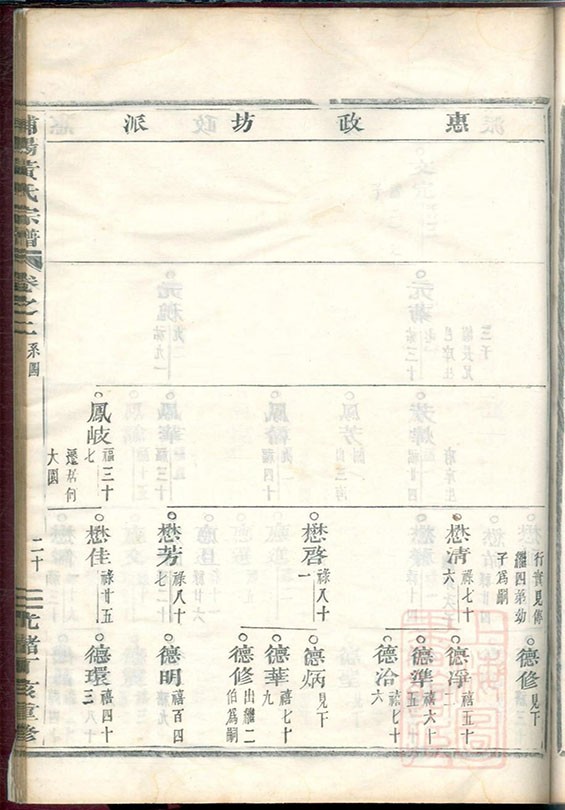 惠政坊派
行實見傳
繼四弟幼
子為嗣
德修 見下
懋清 祿七十六
德淨 禧五十一
德準 禧六十二
德治 禧七十六
懋啓 祿八十一
德炳 見下
德華 禧七十九
德修 出繼二伯為嗣
懋芳 祿八十七
德明 禧百四
鳳岐 福三十七
遷居何大園
懋佳 祿廿五
德環 禧四十三
浦陽黃氏宗譜
卷之二
系圖
二十
光緒丁亥重修